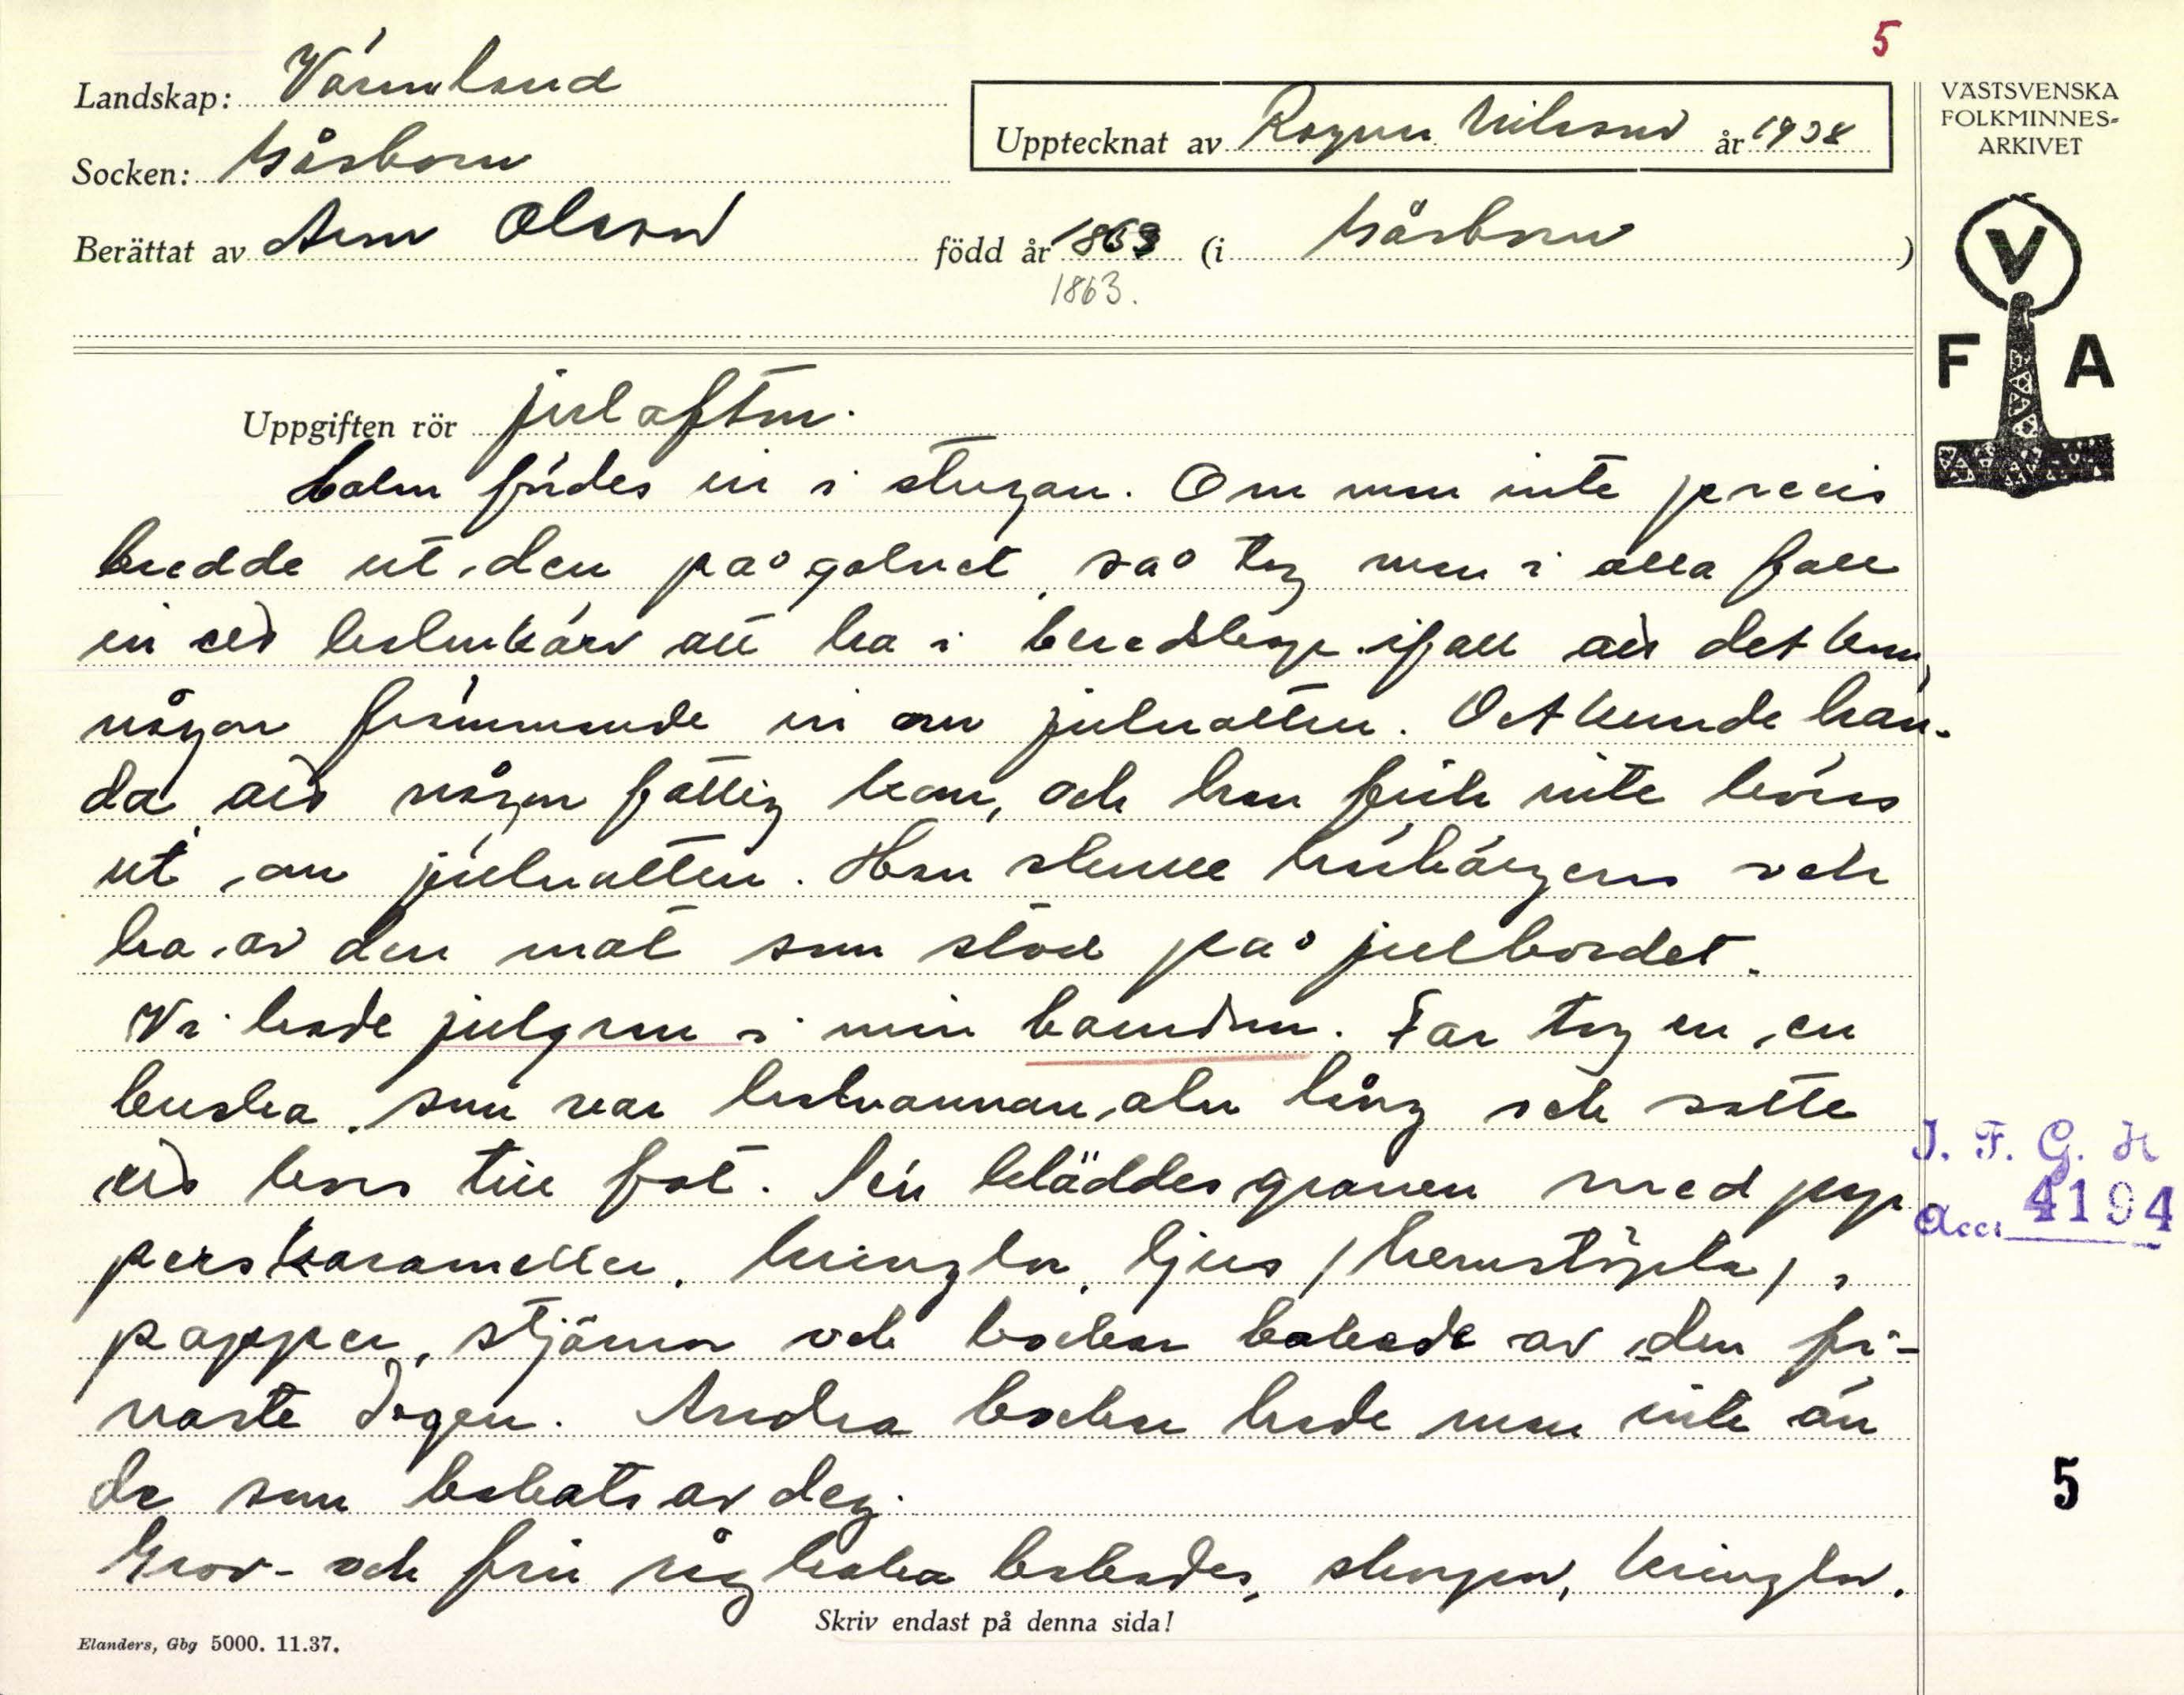 5
Landskap: Värmland
Upptecknat av Ragnar Nilsson år 1938
VÄSTSVENSKA
FOLKMINNES-
ARKIVET
Socken: Gåsborn
Berättat av Anna Olsson född år 1863 (i Gåsborn)
1863.
V
F A
Uppgiften rör julafton.
Halm fördes in i stugan. Om man inte precis
bredde ut den på golvet, så tog man i alla fall
in en halmkärv att ha i beredskap ifall att det kom
någon främmande in om julnatten. Det kunde hän-
da att någon fattig kom, och han fick inte köras
ut om julnatten. Han skulle härbärgeras och
ha av den mat som stod på julbordet.
Vi hade julgran i min barndom. Far tog en en
buska som var halvannan aln lång och satte
ett kors till fot. Sen kläddes granen med pap
perskarameller, kringlor, ljus /hemstöpta/,
papper, stjärnor och bockar bakade av den fi-
naste degen. Andra bockar hade man inte än
de som bakats av deg.
Grov- och fin rågkaka bakades, skorpor, kringlor.
I. F. G. H
Acc. 4194
5
Skriv endast på denna sida!
Elanders, Gbg 5000. 11.37.